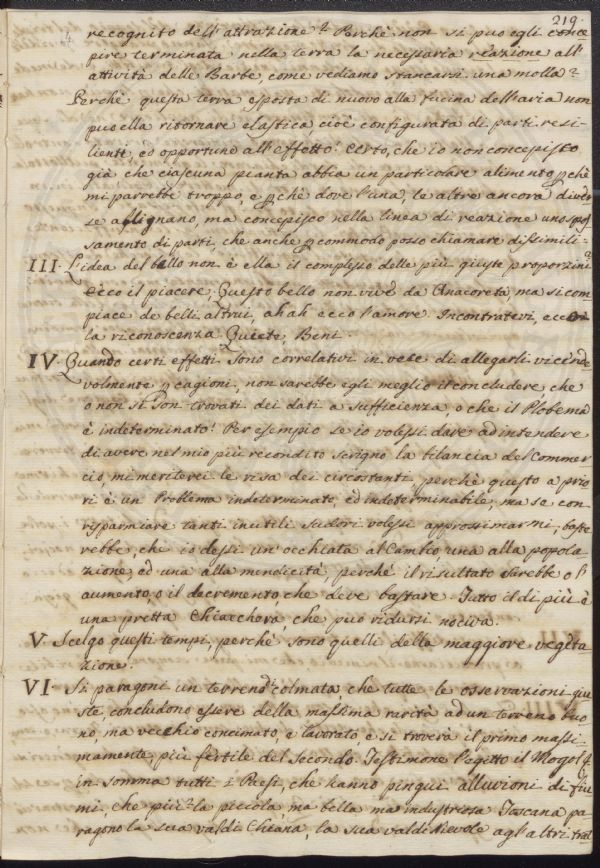 219.
recognito dell'attrazione? Perchè non si può egli conce
pire terminata nella terra la necessaria reazione all'
attività delle Barbe, come vediamo stancarsi una molla?
Perchè questa terra esposta di nuovo alla fucina dell'aria non
può ella ritornare elastica, cioè configurata di parti resi-
lienti, ed opportune all'effetto? Certo, che io non concepisco
già che ciascuna pianta abbia un particolare alimento pchè
mi parrebbe troppo, e pchè dove l'una, le altre ancora diver
se allignano, ma concepisco nella linea di reazione uno spos
samento di parti, che anche p commodo posso chiamare dissimili.
III. L'idea del bello non è ella il complesso delle più giuste proporzini?
Ecco il piacere; Questo bello non vive da Anacoreta, ma si com
piace de belli altrui, ah ah ecco l'amore. Incontratevi, ecco
la riconoscenza. Quiete, Beni.
IV. Quando certi effetti sono correlativi in vece di allegarli vicende
volmente p cagioni, non sarebbe egli meglio il concludere che
o non si son trovati dei dati a sufficienza, o che il Plobema
è indeterminato! Per esempio se io volessi dare ad intendere
di avere nel mio più recondito scrigno la bilancia del Commer
cio, mi meriterei le risa dei circostanti, perchè questo a prio
ri è un Problema indeterminato, ed indeterminabile, ma se con
risparmiare tanti inutili sudori volessi approssimarmi, baste
rebbe, che io dessi un'occhiata al Cambio, una alla popola
zione, ed una alla mendicità, perchè il risultato sarebbe o l'
aumento, o il decremento, che deve bastare. Tutto il di più è
una pretta Chiacchera, che può ridursi nociva.
V. Scelgo questi tempi, perchè sono quelli della maggiore vegeta
zione.
VI. Si paragoni un terreno di colmata, che tutte le osservazioni giu
ste, concludono essere della massima rarità ad un terreno buo
no, ma vecchio concimato, e lavorato, e si troverà il primo massi
mamente, più fertile del secondo. Testimone l'egitto il Mogol,
in somma tutti i Paesi, che hanno pingui alluvioni di fiu
mi, che più? la piccola, ma bella ma industriosa Toscana pa
ragono la sua valdi Chiana, la sua valdi Nievole agl'altri trat